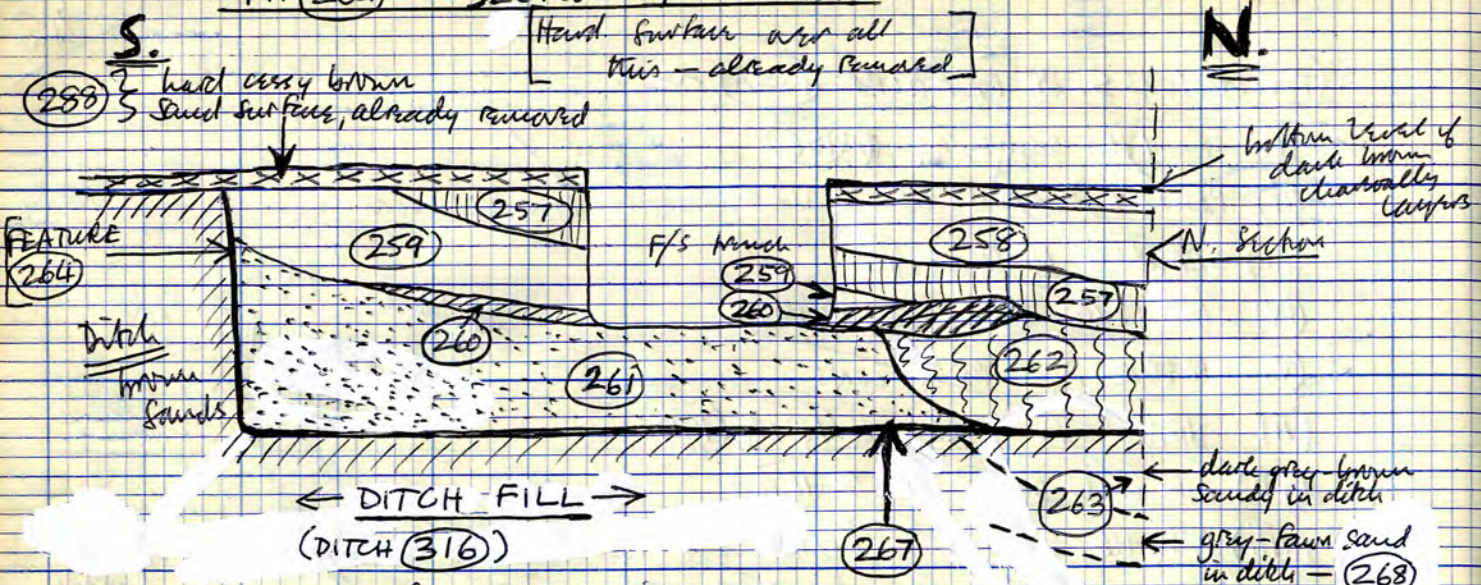 S.
[Hard surface over all
this – already removed]
N.
(288) } hard cessy brown
sand surface, already removed
bottom level of
dark brown
charcoally
layers
(257)
FEATURE
(264)
(259)
F/S trench
(258)
N. Section
(259)
(260)
(257)
Ditch
brown
sands
(260)
(261)
(262)
← DITCH FILL →
(DITCH (316))
(267)
(263)
← dark grey-brown
sandy in ditch
← grey-fawn sand
in ditch – (268)